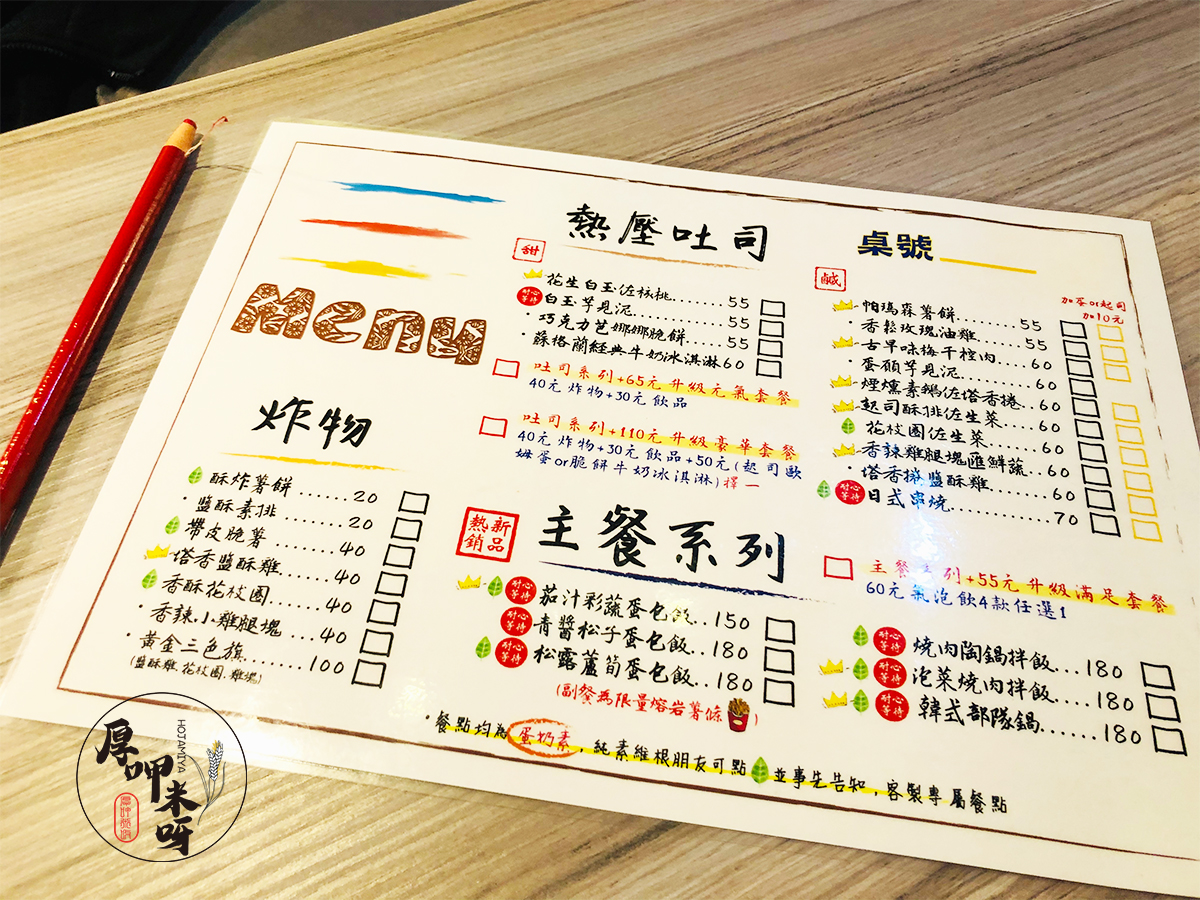 Menu
炸物
酥炸薯餅......20
·鹽酥素排......20
帶皮脆薯......40
塔香鹽酥雞......40
香酥花枝圓......40
·香辣小雞腿塊...40
·黃金三色旗......100
(鹽酥雞.花枝圓.雞塊)
熱壓吐司
甜
花生白玉佐核桃......55
耐心等待
白玉芋見泥......55
·巧克力芭娜娜脆餅......55
·蘇格蘭經典牛奶冰淇淋60
吐司系列+65元升級元氣套餐
40元炸物+30元飲品
吐司系列+110元升級豪華套餐
40元炸物+30元飲品+50元(起司歐
姆蛋or脆餅牛奶冰淇淋)擇一
桌號
鹹
加蛋or起司
加10元
帕瑪森薯餅......55
·香鬆玫瑰油雞......55
古早味梅干控肉...60
·蛋頑芋見泥......60
煙燻素鵝佐塔香捲..60
起司酥排佐生菜...60
花枝圓佐生菜...60
香辣雞腿塊匯鮮蔬..60
·塔香捲鹽酥雞......60
耐心等待
日式串燒......70
熱銷新品
主餐系列
耐心等待
茄汁彩蔬蛋包飯..150
耐心等待
青醬松子蛋包飯..180
耐心等待
松露蘆筍蛋包飯..180
(副餐為限量熔岩薯條)
主餐系列+55元升級滿足套餐
60元氣泡飲4款任選1
耐心等待
燒肉陶鍋拌飯...180
耐心等待
泡菜燒肉拌飯...180
耐心等待
韓式部隊鍋......180
·餐點均為蛋奶素，純素維根朋友可點並事先告知，客製專屬餐點
厚呷米呀
HOTAMIYA